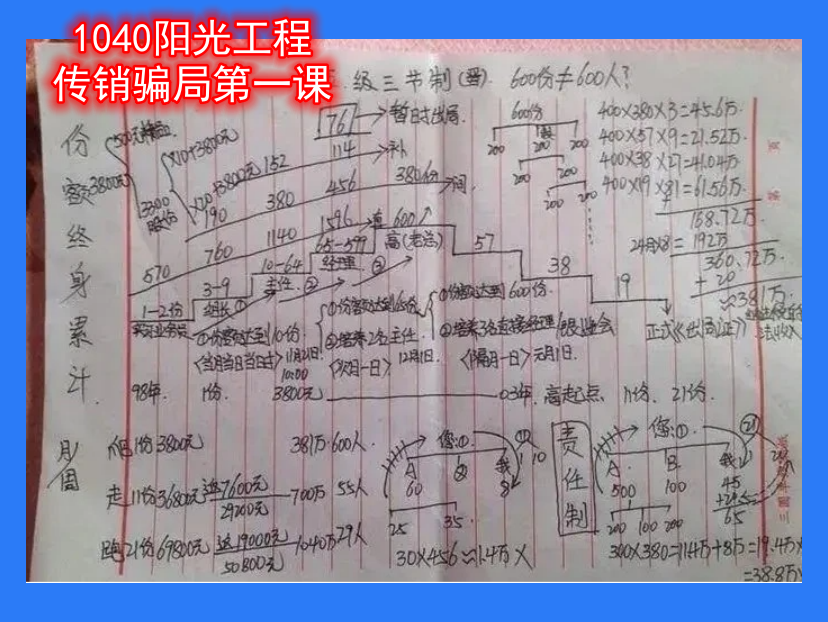 1040阳光工程
传销骗局第一课
级三节制(晋) 600份≠600人?
份额终身累计
500元
3800元
3300
股份
×10+3800元
×20+3800元
761 暂时出局
114 补
152
190 380 456 380份 间
570 760 1140 1596 直 600
600份
200 200 200
200 200
200 200
400×380×3=45.6万
400×57×9=21.52万
400×38×27=41.04万
400×19×81=61.56万
168.72万
24月×8=192万
360.72万
+20
≈381万
1-2份
实习业务员
3-9
组长①
10-64
主任②
65-599
经理③
高(老总)
57
38
19
①份额达到10份
<当月当日当时> 11月21日 10:00
①份额达到65份
②培养2名主任
<次月一日> 12月1日
①份额达到600份
②培养3名直接经理
<隔月一日> 元月1日
正式《出局证》
98年 1份 3800元 03年 高起点 11份 21份
1份3800元 381万 600人
走11份36800元 返7600元 29200元 700万 55人
跑21份69800元 返19000元 50800元 1040万 29人
月/周
您① ⑪
A ② 我 1 10
60 8
25 35
30×456≈1.4万
责任制
您① ㉑
A B 我 1
500 100 45
65
200 100 200
300×380=11.4万+8万=19.4万×
=38.8万